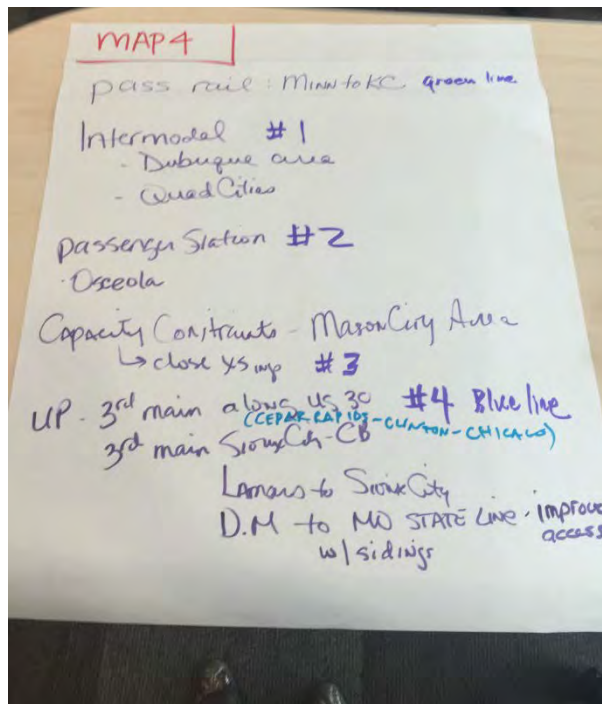 MAP 4
pass rail: MINN to KC green line
Intermodel #1
- Dubuque area
- Quad Cities
passenger Station #2
· Osceola
Capacity Constraints - Mason City Area
↳ close xsing #3
UP - 3rd main along US 30 #4 Blue line
(CEDAR RAPIDS - CLINTON - CHICAGO)
3rd main Sioux City - CB
Lamars to Sioux City
D.M to MO STATE LINE - improve access
w/ sidings